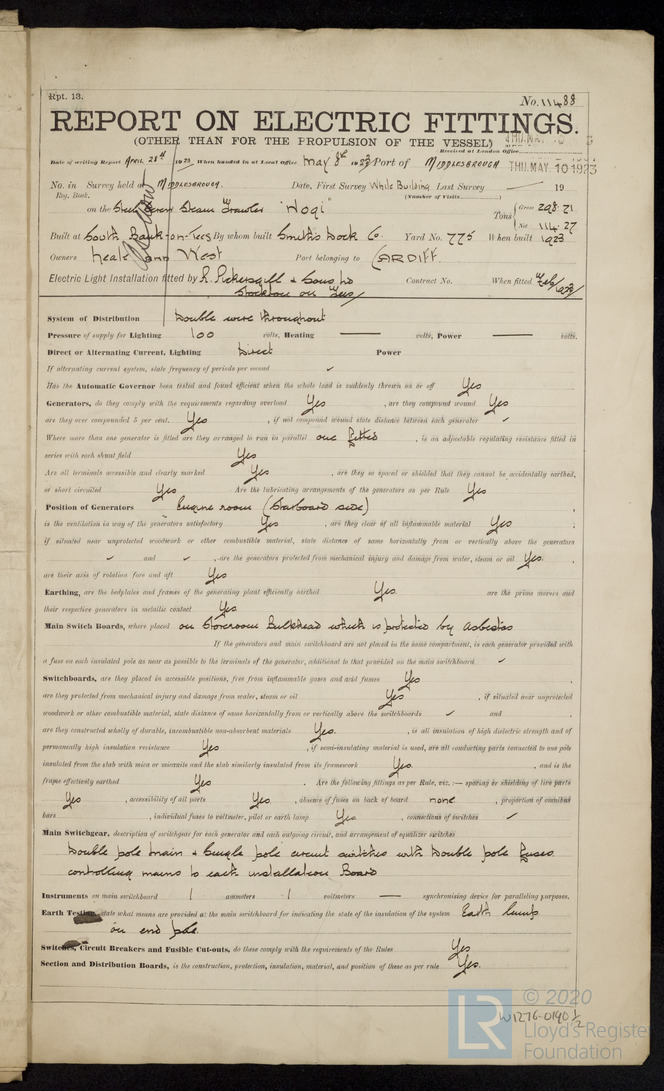 Rpt. 13.
No. 11488
REPORT ON ELECTRIC FITTINGS.
(OTHER THAN FOR THE PROPULSION OF THE VESSEL)
Received at London Office
THU. MAY. 10 1923
Date of writing Report April 28th 1923 When handed in at Local Office May 8th 1923 Port of MIDDLESBROUGH
No. in Survey held at MIDDLESBROUGH. Date, First Survey While Building Last Survey 19
Reg. Book. (Number of Visits
on the Steel Screw Steam Trawler "Hogi" Tons { Gross 298.71
Net 114.27
Built at South Bank-on-Tees By whom built Smith's Dock Co. Yard No. 775 When built 1923
Owners Neale and West Port belonging to CARDIFF.
Electric Light Installation fitted by R. Pickersgill & Sons Ld Contract No. When fitted Feb/1923
Stockton on Tees
System of Distribution Double wire throughout
Pressure of supply for Lighting 100 volts, Heating volts, Power volts.
Direct or Alternating Current, Lighting Direct Power
If alternating current system, state frequency of periods per second ✓
Has the Automatic Governor been tested and found efficient when the whole load is suddenly thrown on or off Yes
Generators, do they comply with the requirements regarding overload Yes, are they compound wound Yes
are they over compounded 5 per cent. Yes, if not compound wound state distance between each generator ✓
Where more than one generator is fitted are they arranged to run in parallel one fitted, is an adjustable regulating resistance fitted in
series with each shunt field Yes
Are all terminals accessible and clearly marked Yes, are they so spaced or shielded that they cannot be accidentally earthed,
or short circuited Yes Are the lubricating arrangements of the generators as per Rule Yes
Position of Generators Engine room (Starboard side)
is the ventilation in way of the generators satisfactory Yes, are they clear of all inflammable material Yes
if situated near unprotected woodwork or other combustible material, state distance of same horizontally from or vertically above the generators
✓ and ✓, are the generators protected from mechanical injury and damage from water, steam or oil Yes.
are their axis of rotation fore and aft Yes
Earthing, are the bedplates and frames of the generating plant efficiently earthed Yes. are the prime movers and
their respective generators in metallic contact Yes
Main Switch Boards, where placed on Storeroom Bulkhead which is protected by asbestos
If the generators and main switchboard are not placed in the same compartment, is each generator provided with
a fuse on each insulated pole as near as possible to the terminals of the generator, additional to that provided on the main switchboard ✓
Switchboards, are they placed in accessible positions, free from inflammable gases and acid fumes Yes
are they protected from mechanical injury and damage from water, steam or oil Yes, if situated near unprotected
woodwork or other combustible material, state distance of same horizontally from or vertically above the switchboards ✓ and
are they constructed wholly of durable, incombustible non-absorbent materials Yes., is all insulation of high dielectric strength and of
permanently high insulation resistance Yes, if semi-insulating material is used, are all conducting parts connected to one pole
insulated from the slab with mica or micanite and the slab similarly insulated from its framework Yes., and is the
frame effectively earthed Yes. Are the following fittings as per Rule, viz.:— spacing or shielding of live parts
Yes, accessibility of all parts Yes, absence of fuses on back of board none, proportion of omnibus
bars, individual fuses to voltmeter, pilot or earth lamp Yes, connections of switches ✓
Main Switchgear, description of switchgear for each generator and each outgoing circuit, and arrangement of equalizer switches
Double pole main & Single pole circuit switches with Double pole fuses
controlling mains to each installation Board
Instruments on main switchboard 1 ammeters 1 voltmeters synchronising device for paralleling purposes.
Earth Testing, state what means are provided at the main switchboard for indicating the state of the insulation of the system Earth lamps
on end pole
Switches, Circuit Breakers and Fusible Cut-outs, do these comply with the requirements of the Rules Yes
Section and Distribution Boards, is the construction, protection, insulation, material, and position of these as per rule Yes.
W1276-0190 1/2
LR
© 2020
Lloyd's Register
Foundation